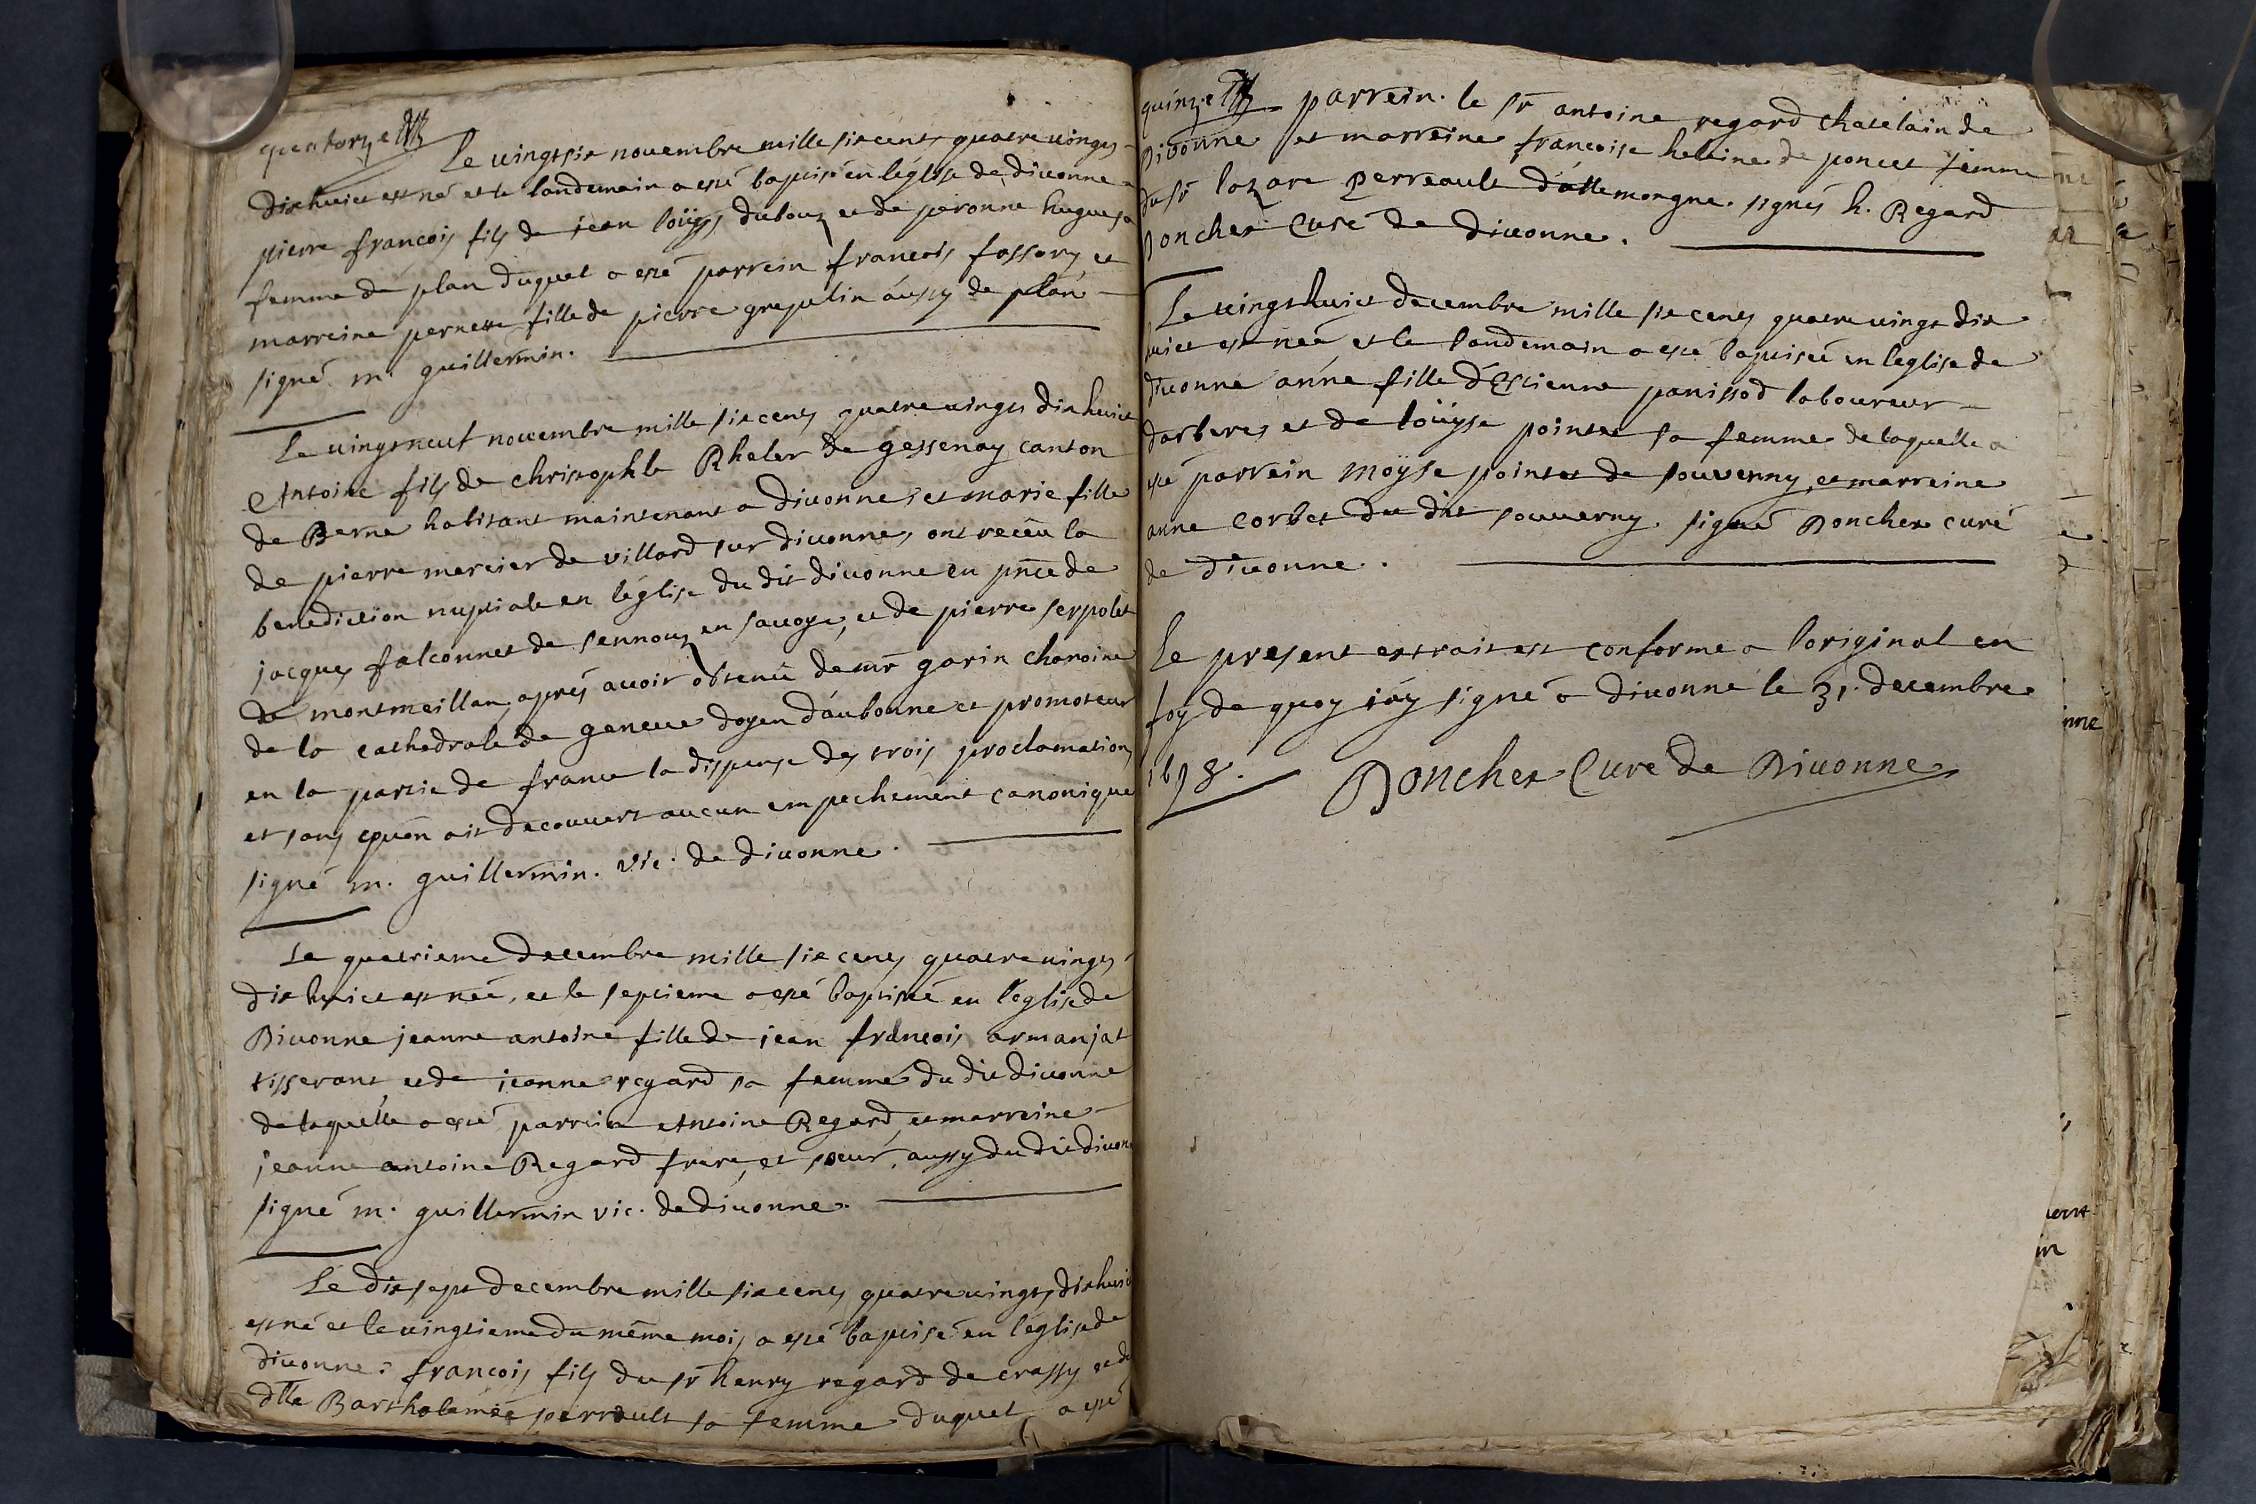 quatorze
Le vingt six novembre mille six cents quatre vingts
dix huict est né et le landemain a esté baptisé en léglise de divonne
pierre francois fils de jean loüys dubouz et de peronne hugues sa
femme de plan duquel a esté parrein francois fossory et
marreine pernette fille de pierre grepelin aussy de plan
signé m. guillermin.
Le vingt neuf novembre mille six cents quatre vingts dix huict
Antoine fils de christophle Rheler de gessenay canton
de Berne habitant maintenant a divonne, et marie fille
de pierre mercier de villard sur divonne, ont receu la
benediction nuptiale en léglise du dit divonne en pñce de
jacques falconnet de sennouz en savoye, et de pierre serpolet
de montmeillan, aprés avoir obtenü de mr garin chanoine
de la cathedrale de geneve doyen d'aubonne et promoteur
en la partie de france la dispense des trois proclamations
et sans qu'on ait decouvert aucun empechement canonique
signé m. guillermin. vic. de divonne.
Le quatrieme decembre mille six cents quatre vingts
dix huict est née, et le septieme a esté baptisée en l'eglise de
Divonne jeanne antoine fille de jean francois armanjat
tisserant et de jeanne regard sa femme du dit divonne
de laquelle a esté parrein Antoine Regard, et marreine
jeanne antoine Regard frere, et soeur, aussy du dit divonne
signé m. guillermin vic. de divonne.
Le dix sept decembre mille six cents quatre vingts dix huict
est né et le vingtieme du même mois a esté baptisé en l'eglise de
divonne: francois fils du sr henry regard de crassy et de
dlle Bartholemée perrault sa femme duquel a esté
quinze parrein. le sr antoine regard chatelain de
Divonne et marreine francoise heleine de poncet femme
du sr lazare perreault d'allemongne. signés h. Regard
Doncher Curé de divonne.
Le vingt huict decembre mille six cents quatre vingt dix
huict est née et le landemain a esté baptisée en l'eglise de
divonne anne fille d'Estienne panissod laboureur
darberes et de loüyse pointet sa femme de laquelle a
esté parrein moÿse pointet de souverny, et marreine
anne corbet du dit souverny. signé Doncher curé
de divonne.
Le present extrait est conforme a l'original en
foy de quoy j'ay signé a divonne le 31. decembre
1698. Doncher Cure de Divonne